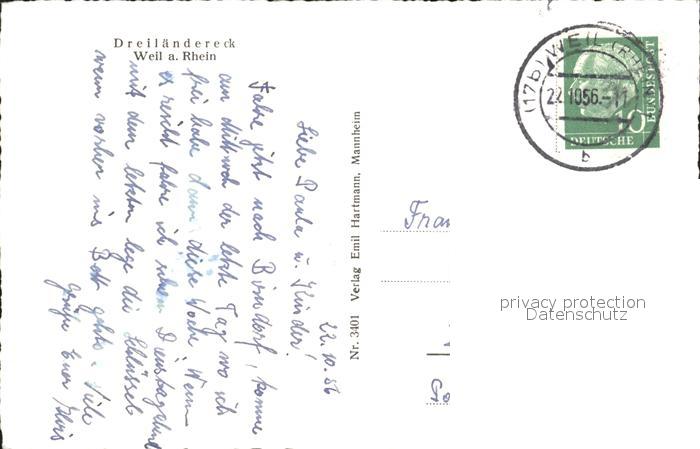 Dreiländereck
Weil a. Rhein
22.10.56
Liebe Paula u. Kinder!
Fahre jetzt nach Binsdorf, komme
am Mittwoch der letzte Tag wo ich
frei habe dann diese Woche. Wenn
es reicht fahre ich schon Dienstagabend
mit dem letzten lege die Schlüssel
wenn vorher ins Bett gehts. Viele
Grüße Euer
Nr. 3401 Verlag Emil Hartmann, Mannheim
(17b) WEIL (RHEIN)
22.10.56.-11
b
10
DEUTSCHE
BUNDESPOST
Frau
privacy protection
Datenschutz